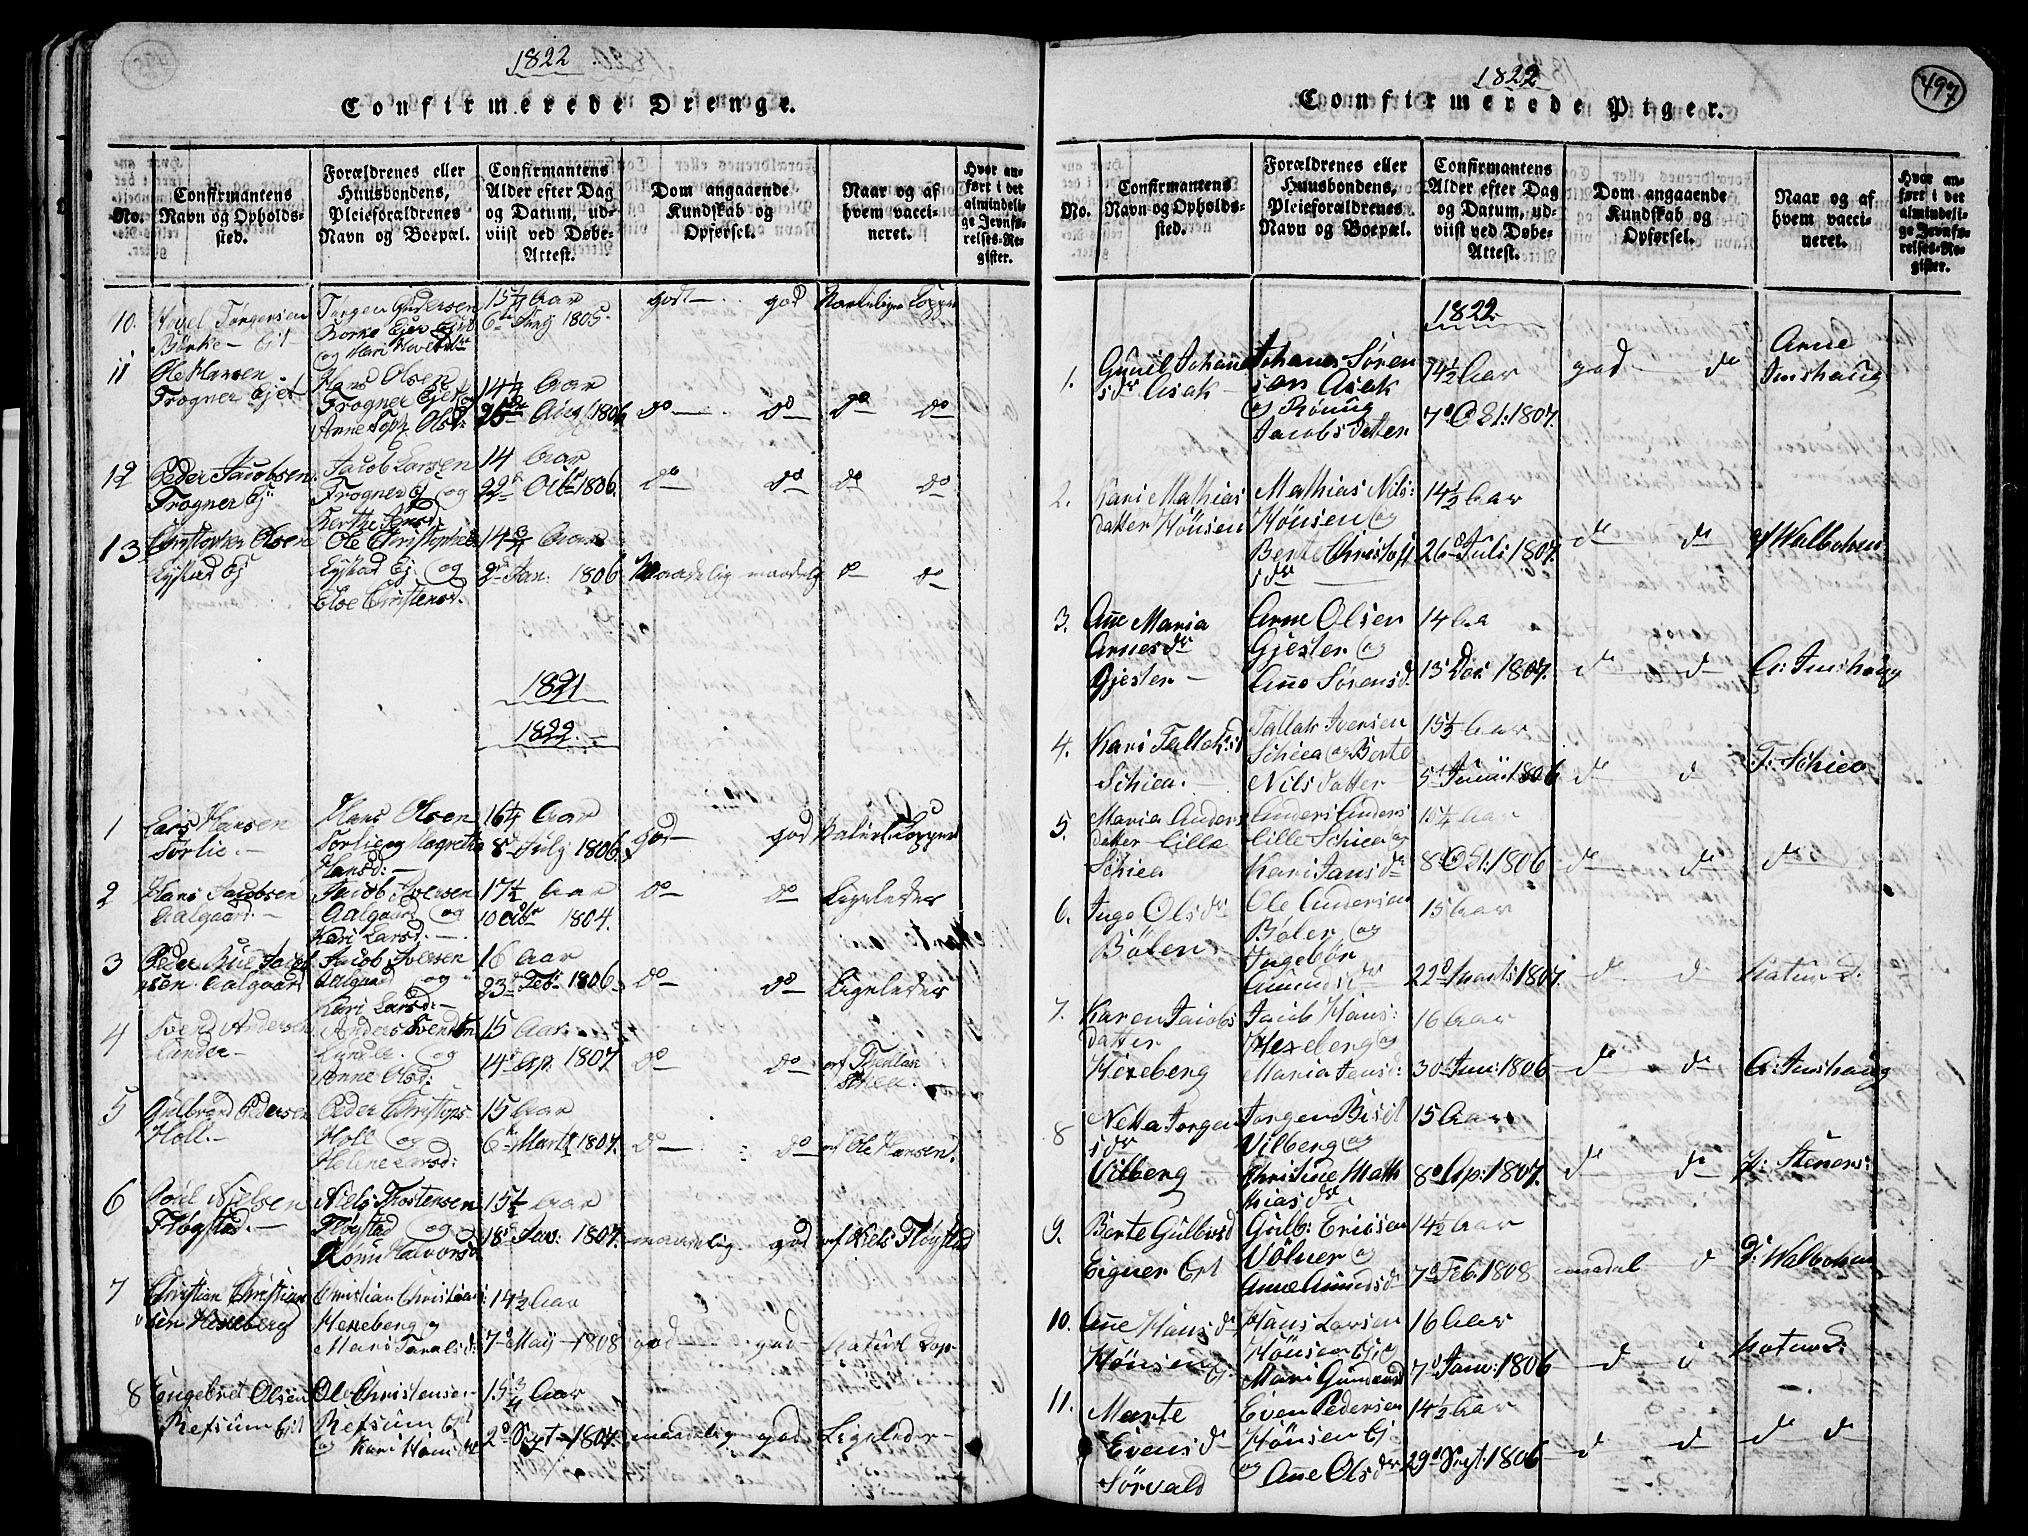 1822
Confirmerede Drenge.
No.
Confirmantens
Navn og Opholds-
sted.
Forældrenes eller
Huusbondens,
Pleieforældrenes
Navn og Boepæl.
Confirmantens
Alder efter Dag
og Datum, ud-
viist ved Døbe-
Attest.
Dom angaaende
Kundskab og
Opførsel.
Naar og af
hvem vacci-
neret.
Hvor an-
ført i det
almindeli-
ge Jevnfø-
relses-Re-
gister.
10.
Torgersen
Jørgen
15 1/2 Aar
6 Juny 1805
godt god
11
Ole Hansen
Frogner Ejet
Hans Olsen
Frogner Ejet
14 1/2 Aar
25 Aug 1806
do do do do
12
Peder Jacobsen
Frogner Ej
Jacob Larsen
Frogner Ej og
14 Aar
22 Octb 1806.
do do do do
13
Christopher Olsen
Eystad Ej
Ole Christophers
Eystad Ej. og
Eloe Christensd.
14 3/4 Aar
2 Jan: 1806
Maadelig maadelig do do
1821
1822.
1
Lars Hansen
Sørlie.
Hans Olsen
Sørlie og Magrethe
Hansd:
16 1/4 Aar
8 July 1806.
god god
2
Hans Jacobsen
Aalgaard.
Jacob Iversen
Aalgaard og
Kari Larsd.
17 1/2 Aar
10 Octbr 1804.
do do Ligeledes
3
Peder Aalgaard
Jacob Iversen
Aalgaard og
Kari Larsd:
16 Aar
23 Feb 1806
do do Ligeledes
4
Svend Andersen
Lunder
Anders Svendsen
Lunde og
Anne Olsd:
15 Aar
14 Ap. 1807
do do
5
Gulbrand Pedersen
Holl.
Peder Christoph
Holl og
Helene Larsd:
15 Aar
6 Marti 1807.
do do af Ole Hansen.
6
Poul Nielsen
Fløgstad.
Niels Thostensen
Fløgstad og
Halvorsd
15 1/4 Aar
18 Jan: 1807.
maadelig god af Niels Fløgstad
7
Christian Christian
sen Hexeberg
Christian Christian
Hexeberg og
Mari
14 1/2 Aar
7 May 1808
god god Naturl Kop
8
Engebret Olsen
Refsum Eit
Ole Christensen
Refsum Eit
og Kari Hansdr
15 3/4 Aar
2 Sept 1807.
maadelig god Ligeledes
1822
497
Confirmerede Piger.
No.
Confirmantens
Navn og Opholds-
sted.
Forældrenes eller
Huusbondens,
Pleieforældrenes
Navn og Boepæl.
Confirmantens
Alder efter Dag
og Datum, ud-
viist ved Døbe-
Attest.
Dom angaaende
Kundskab og
Opførsel.
Naar og af
hvem vacci-
neret.
Hvor an-
ført i det
almindeli-
ge Jevnfø-
relses-Re-
gister.
1822
1.
Gunil Johane
sdr Asak
Johanes Søren
sen Asak
og Rønnug
Jacobsdatter
14 1/2 Aar
7 Oct: 1807.
god do
Arne
Imshaug
2.
Kari Mathias
datter Hønsen
Mathias Nils:
Hønsen og
Berte Christoff
sdr
14 1/2 Aar
26 Juli 1807.
do do af Walbohen
3.
Ane Maria
Arnesdr
Gjester
Arne Olsen
Gjester og
Ane Sørensd.
14 Aa
13 Dec 1807.
d d A: Imshaug
4.
Kari Tallaksd
Schiea.
Tallak Iversen
Schiea og Berte
Nilsdatter
15 1/2 Aar
5 Junii 1806
d d T: Schiea
5.
Maria Anders
datter Lille
Schiea
Anders Anders
Lille Schiea og
Kari Jansdr
15 1/4 Aar
8 Oct: 1806
d d d
6.
Inge Olsdr
Bølen
Ole Andersen
Bøler og
Ingebør
Amundsdr
15 Aar
22 Marts 1807.
d d Natur d.
7.
Karen Jacobs
datter
Hexeberg
Jacob Hans:
Hexeberg og
Maria Jensd:
16 Aar
30 Jun: 1806
d d A: Imshaug
8
Netta Jorgen
sdr
Vilberg
Jorgen
Vilberg og
Christine Math
hiasdr
15 Aar
8 Ap: 1807.
d d P: Steners:
9.
Berte Gulbrsd
Eigner Eit
Gulb: Ericsen
Vølner og
Ane Amundsd
14 1/2 Aar
7 Feb. 1808
maadel d Walbohen
10.
Ane Hansd
Hønsen Ej
Hans Larsen
Hønsen Ej og
Mari Gunersd
16 Aar
7 Janu: 1806
d d Natur d:
11.
Marte
Evensd
Sørvald
Even Pedersen
Hønsen Ej
og Ane Olsdr
14 1/2 Aar
29 Sept: 1806
d d d d